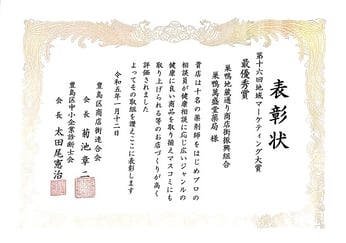 表彰状
第十六回地域マーケティング大賞
最優秀賞
巣鴨地蔵通り商店街振興組合
巣鴨萬盛堂薬局 様
貴店は十名の薬剤師をはじめプロの
相談員が健康相談に応じ広いジャンルの
健康に良い商品を取り揃えマスコミにも
取り上げられる等のお店づくりが高く
評価されました
よってその取組を讃えここに表彰します
令和五年一月十二日
豊島区商店街連合会
会長 菊池章二
豊島区中小企業診断士会
会長 太田尾憲治